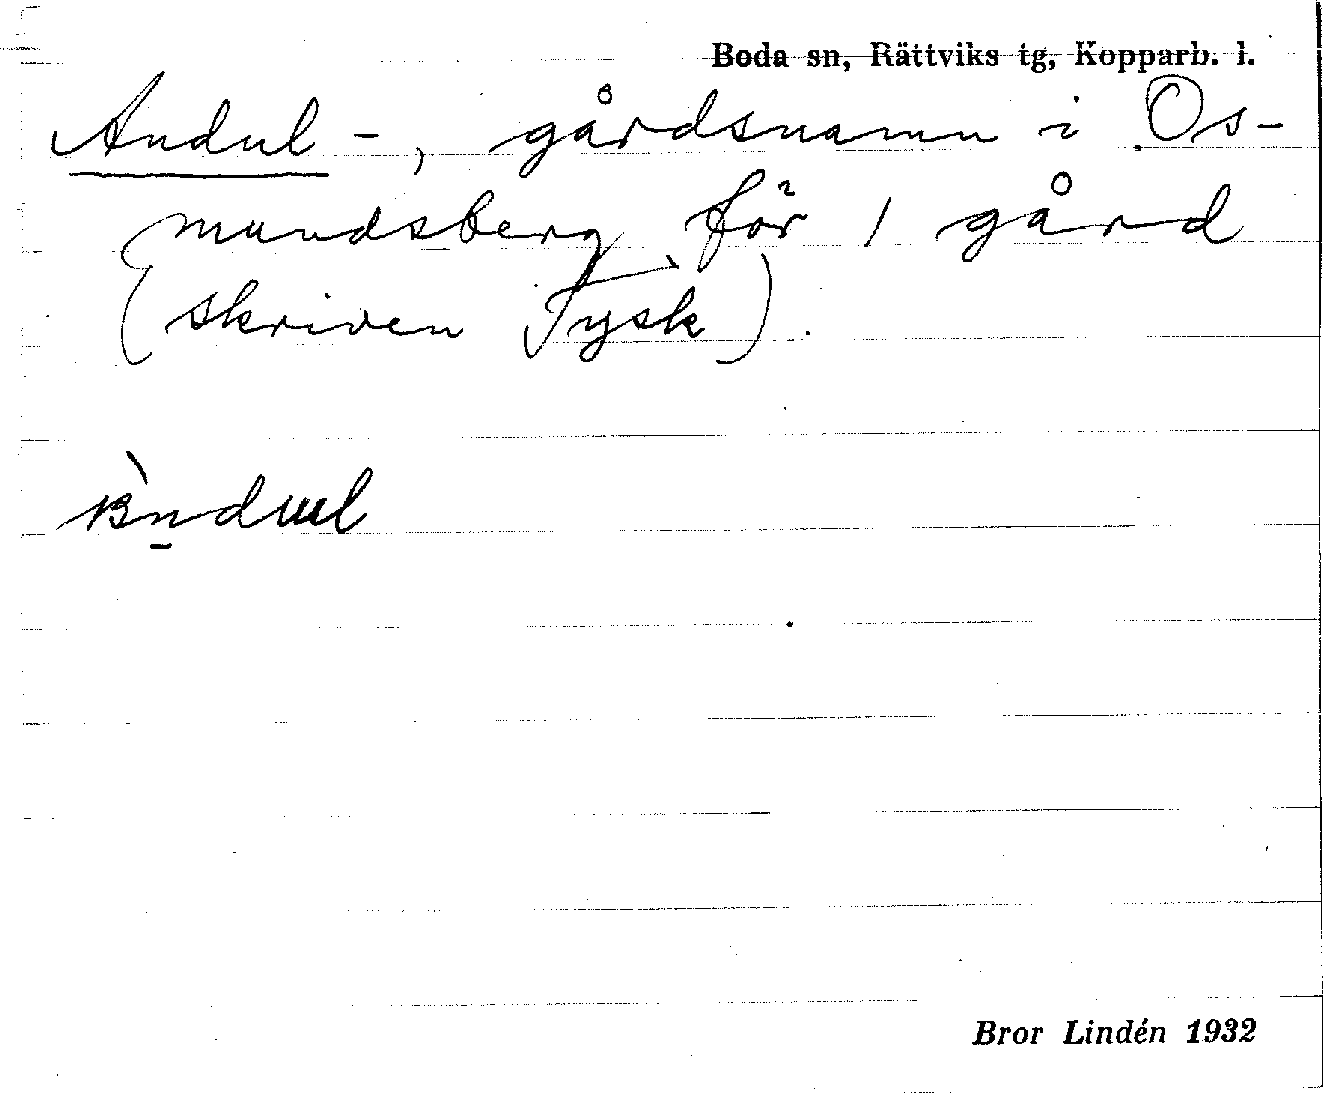 Boda sn, Rättviks tg, Kopparb. l.
Andul-, gårdsnamn i Os-
mundsberg för 1 gård
(skriven Tysk).
Bror Lindén 1932